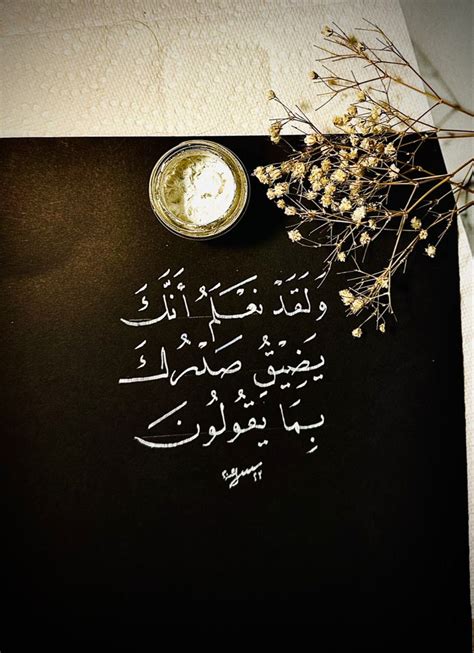 وَلَقَدْ نَعْلَمُ أَنَّكَ
يَضِيْقُ صَدْرُكَ
بِمَا يَقُولُونَ